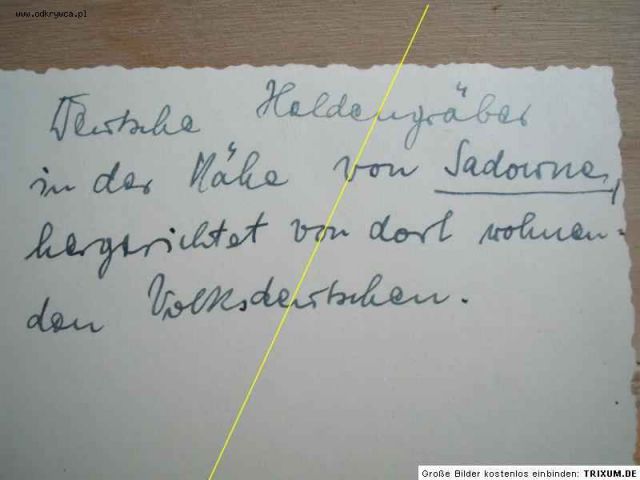 www.odkrywca.pl
Deutsche Heldengräber
in der Nähe von Sadowne,
hergerichtet von dort wohnen-
den Volksdeutschen.
Große Bilder kostenlos einbinden: TRIXUM.DE